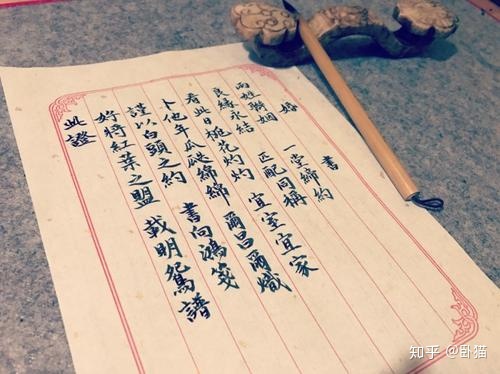 婚 書
兩姓聯姻 一堂締約
良緣永結 匹配同稱
看此日桃花灼灼 宜室宜家
卜他年瓜瓞綿綿 爾昌爾熾
謹以白頭之約 書向鴻箋
好將紅葉之盟 載明鴛譜
此證
知乎 @卧猫